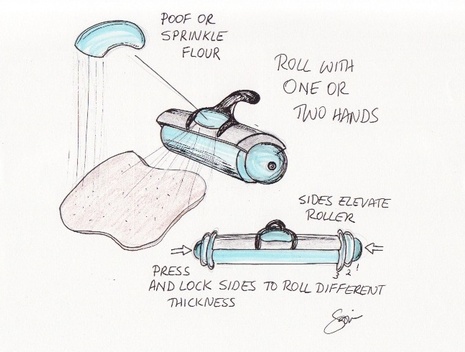 POOF OR
SPRINKLE
FLOUR
ROLL WITH
ONE OR
TWO HANDS
SIDES ELEVATE
ROLLER
3 2 1
PRESS
AND LOCK SIDES TO ROLL DIFFERENT
THICKNESS